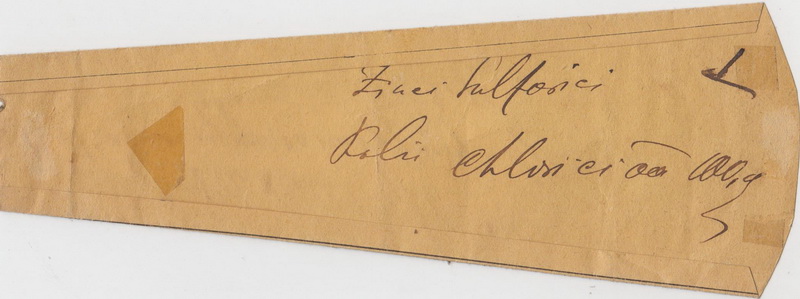 Zinci Sulfurici
Kalii Chlorici āā 100,0